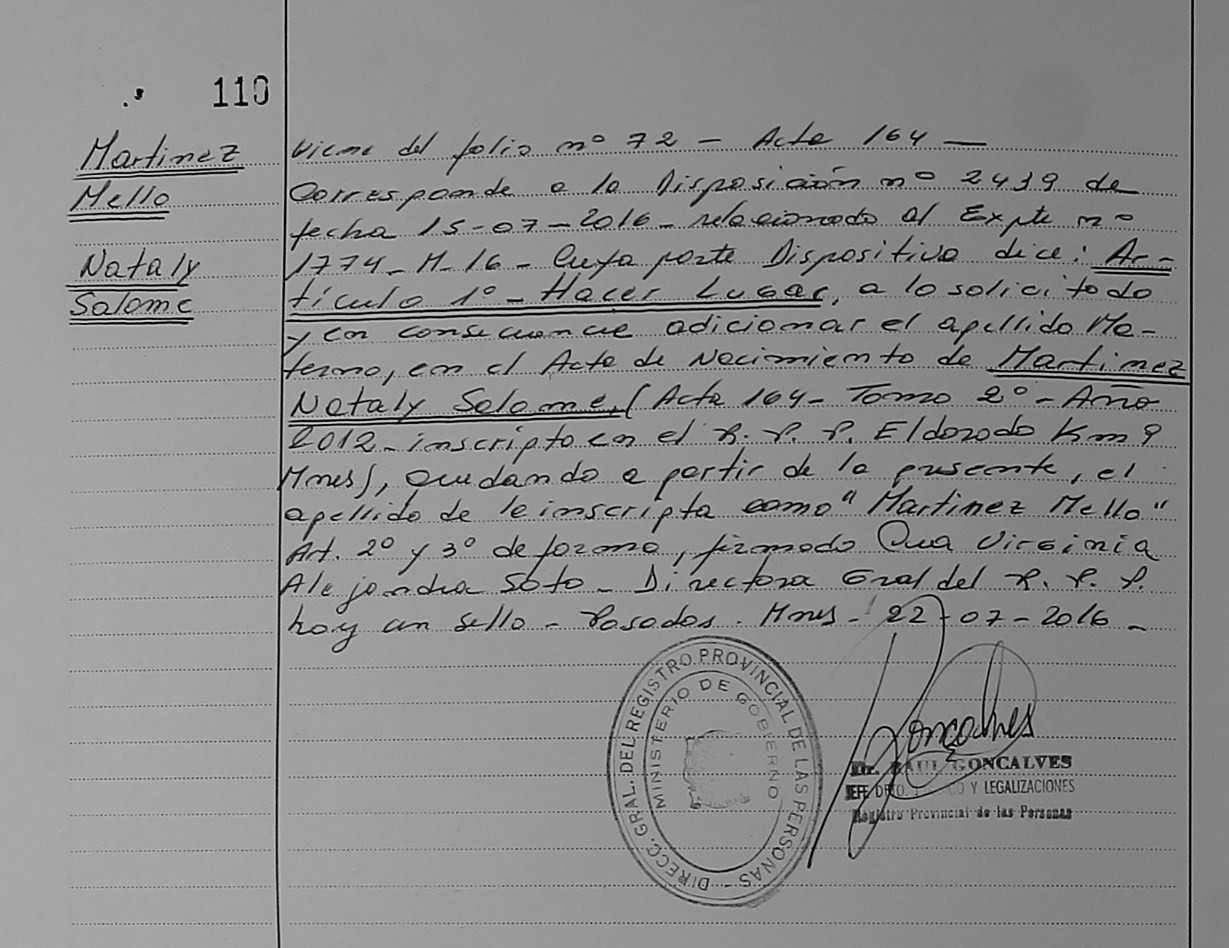 110
Martinez
Mello
Nataly
Salome
Viene del folio nº 72 - Acta 164 -
Corresponde a la Disposición nº 2439 de
fecha 15-07-2016- relacionado al Expte nº
1774-M-16- Cuya parte Dispositiva dice: Ar-
tículo 1º- Hacer Lugar, a lo solicitado
y en consecuencia adicionar el apellido Ma-
terno, en el Acta de Nacimiento de Martinez
Nataly Salome, (Acta 164- Tomo 2º- Año
2012- inscripta en el R. P. P. Eldorado Km 9
Mnes), quedando a partir de la presente, el
apellido de la inscripta como "Martinez Mello"
Art. 2º y 3º de forma, firmado Virginia
Alejandra Soto- Directora Gral del R. P. P.
hay un sello- Posadas. Mnes- 22-07-2016-
DIRECC. GRAL. DEL REGISTRO PROVINCIAL DE LAS PERSONAS -
MINISTERIO DE GOBIERNO
Goncalves
Dr. RAUL GONCALVES
JEFE DPTO. Y LEGALIZACIONES
Registro Provincial de las Personas